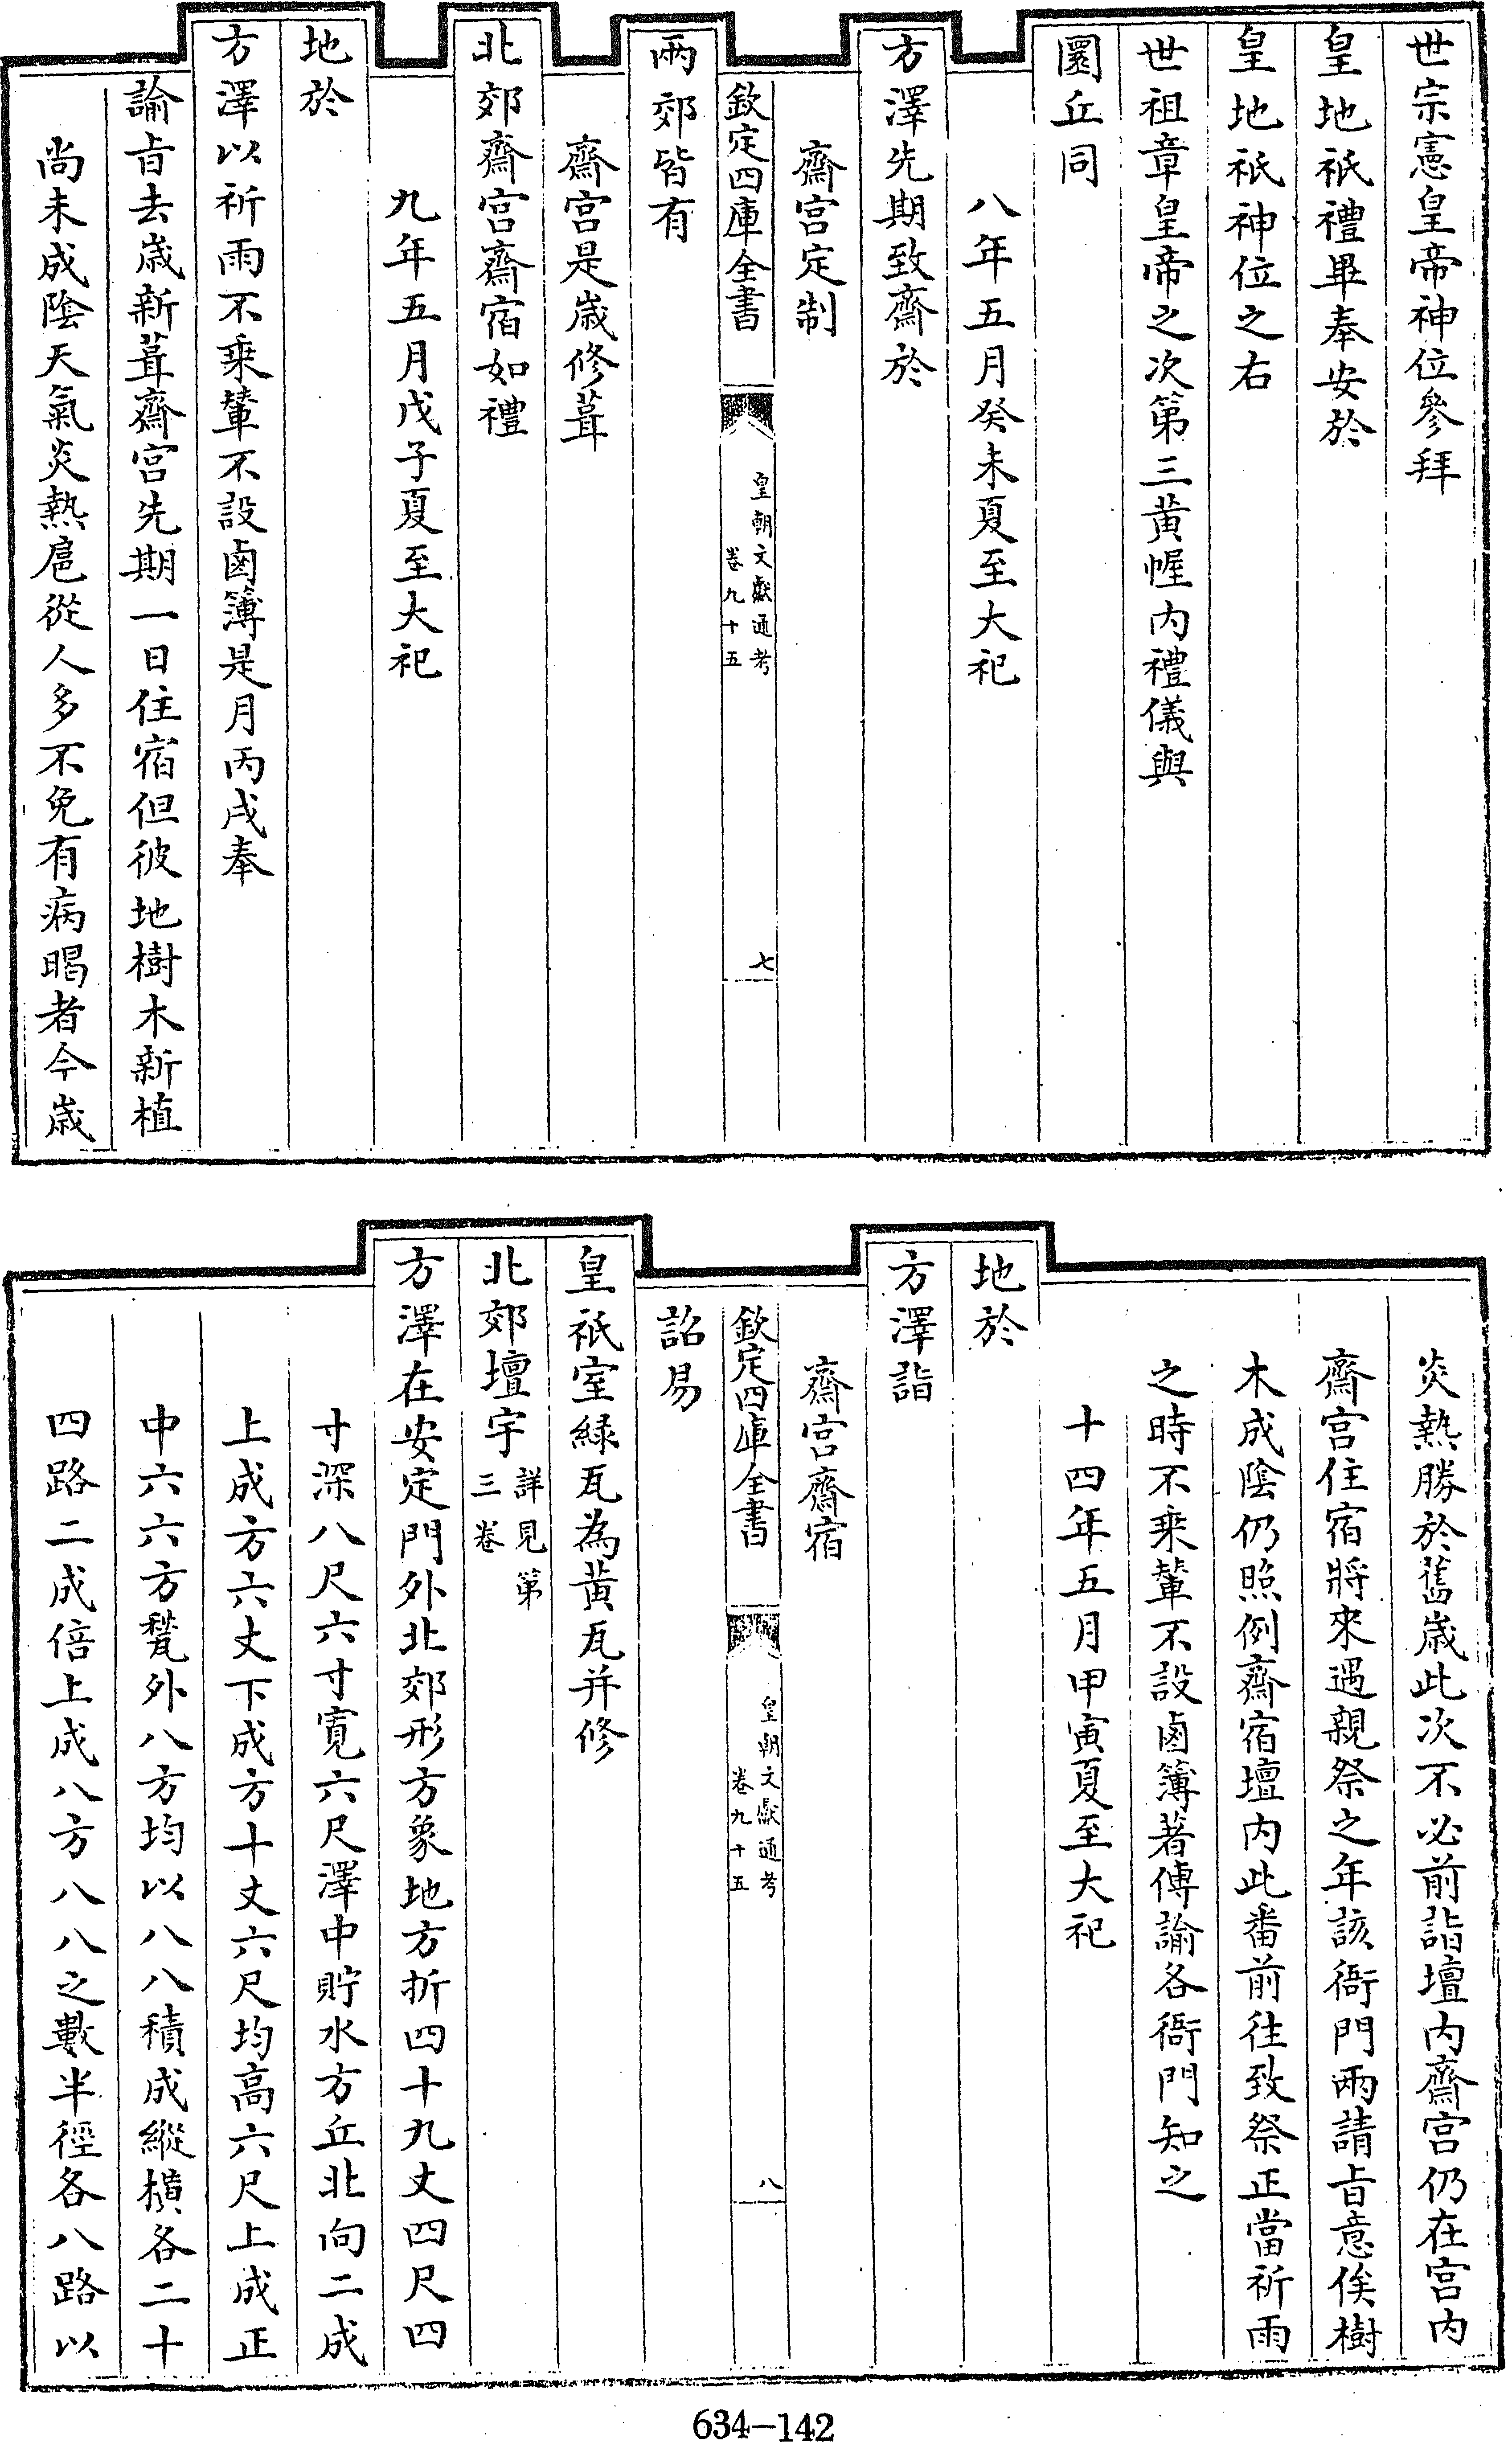 世宗憲皇帝神位參拜
皇地祇禮畢奉安於
皇地祇神位之右
世祖章皇帝之次第三黃幄内禮儀與
圜丘同
八年五月癸未夏至大祀
方澤先期致齋於
齋宫定制
欽定四庫全書
皇朝文獻通考
卷九十五
七
兩郊皆有
齋宫是歲修葺
北郊齋宫齋宿如禮
九年五月戊子夏至大祀
地於
方澤以祈雨不乗輦不設鹵簿是月丙戌奉
諭旨去歲新葺齋宫先期一日住宿但彼地樹木新植
尚未成陰天氣炎熱扈從人多不免有病暍者今歲
炎熱勝於舊歲此次不必前詣壇内齋宫仍在宫内
齋宫住宿將來遇親祭之年該衙門兩請旨意俟樹
木成陰仍照例齋宿壇内此番前往致祭正當祈雨
之時不乗輦不設鹵簿著傳諭各衙門知之
十四年五月甲寅夏至大祀
地於
方澤詣
齋宫齋宿
欽定四庫全書
皇朝文獻通考
卷九十五
八
詔易
皇祇室緑瓦為黄瓦并修
北郊壇宇詳見第
三卷
方澤在安定門外北郊形方象地方折四十九丈四尺四
寸深八尺六寸寛六尺澤中貯水方丘北向二成
上成方六丈下成方十丈六尺均高六尺上成正
中六六方甃外八方均以八八積成縱横各二十
四路二成倍上成八方八八之數半徑各八路以
634-142